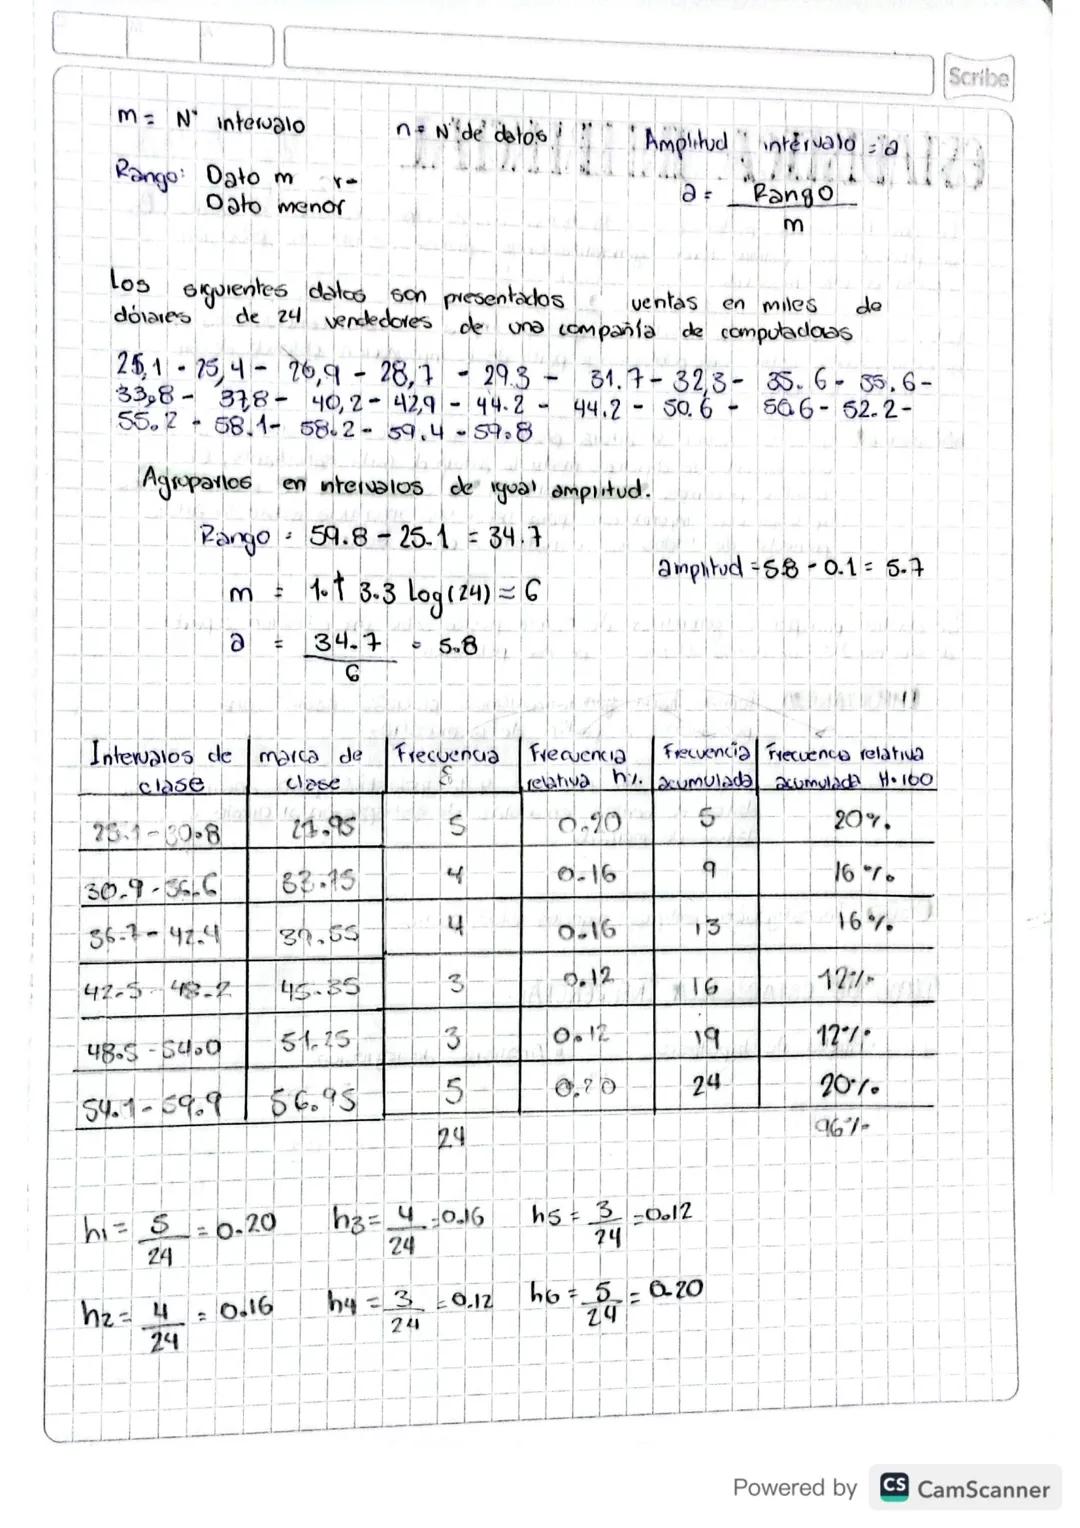 Scribe
m = N° intervalo n = N° de datos Amplitud intervalo = a
Rango: Dato m r -
Dato menor
a = Rango
m
Los siguientes datos son presentados ventas en miles de
dólares de 24 vendedores de una compañía de computadoras
25,1 - 25,4 - 26,9 - 28,7 - 29.3 - 31.7 - 32,3 - 35.6 - 35.6 -
33,8 - 37,8 - 40,2 - 42,9 - 44.2 - 44.2 - 50.6 - 50.6 - 52.2 -
55.2 - 58.1 - 58.2 - 59.4 - 59.8
Agruparlos en ntervalos de igual amplitud.
Rango = 59.8 - 25.1 = 34.7
amplitud = 5.8 - 0.1 = 5.7
m = 1 + 3.3 Log (24) ≈ 6
a = 34.7 = 5.8
6
Intervalos de clase | marca de clase | Frecuencia f | Frecuencia relativa h% | Frecuencia acumulada | Frecuencia relativa acumulada H.100
25.1 - 30.8 | 27.95 | 5 | 0.20 | 5 | 20%
30.9 - 36.6 | 33.75 | 4 | 0.16 | 9 | 16%
36.7 - 42.4 | 39.55 | 4 | 0.16 | 13 | 16%
42.5 - 48.2 | 45.35 | 3 | 0.12 | 16 | 12%
48.5 - 54.0 | 51.25 | 3 | 0.12 | 19 | 12%
54.1 - 59.9 | 56.95 | 5 | 0.20 | 24 | 20%
24 96%
h1 = 5/24 = 0.20 h3 = 4/24 = 0.16 h5 = 3/24 = 0.12
h2 = 4/24 = 0.16 h4 = 3/24 = 0.12 h6 = 5/24 = 0.20
Powered by CS CamScanner